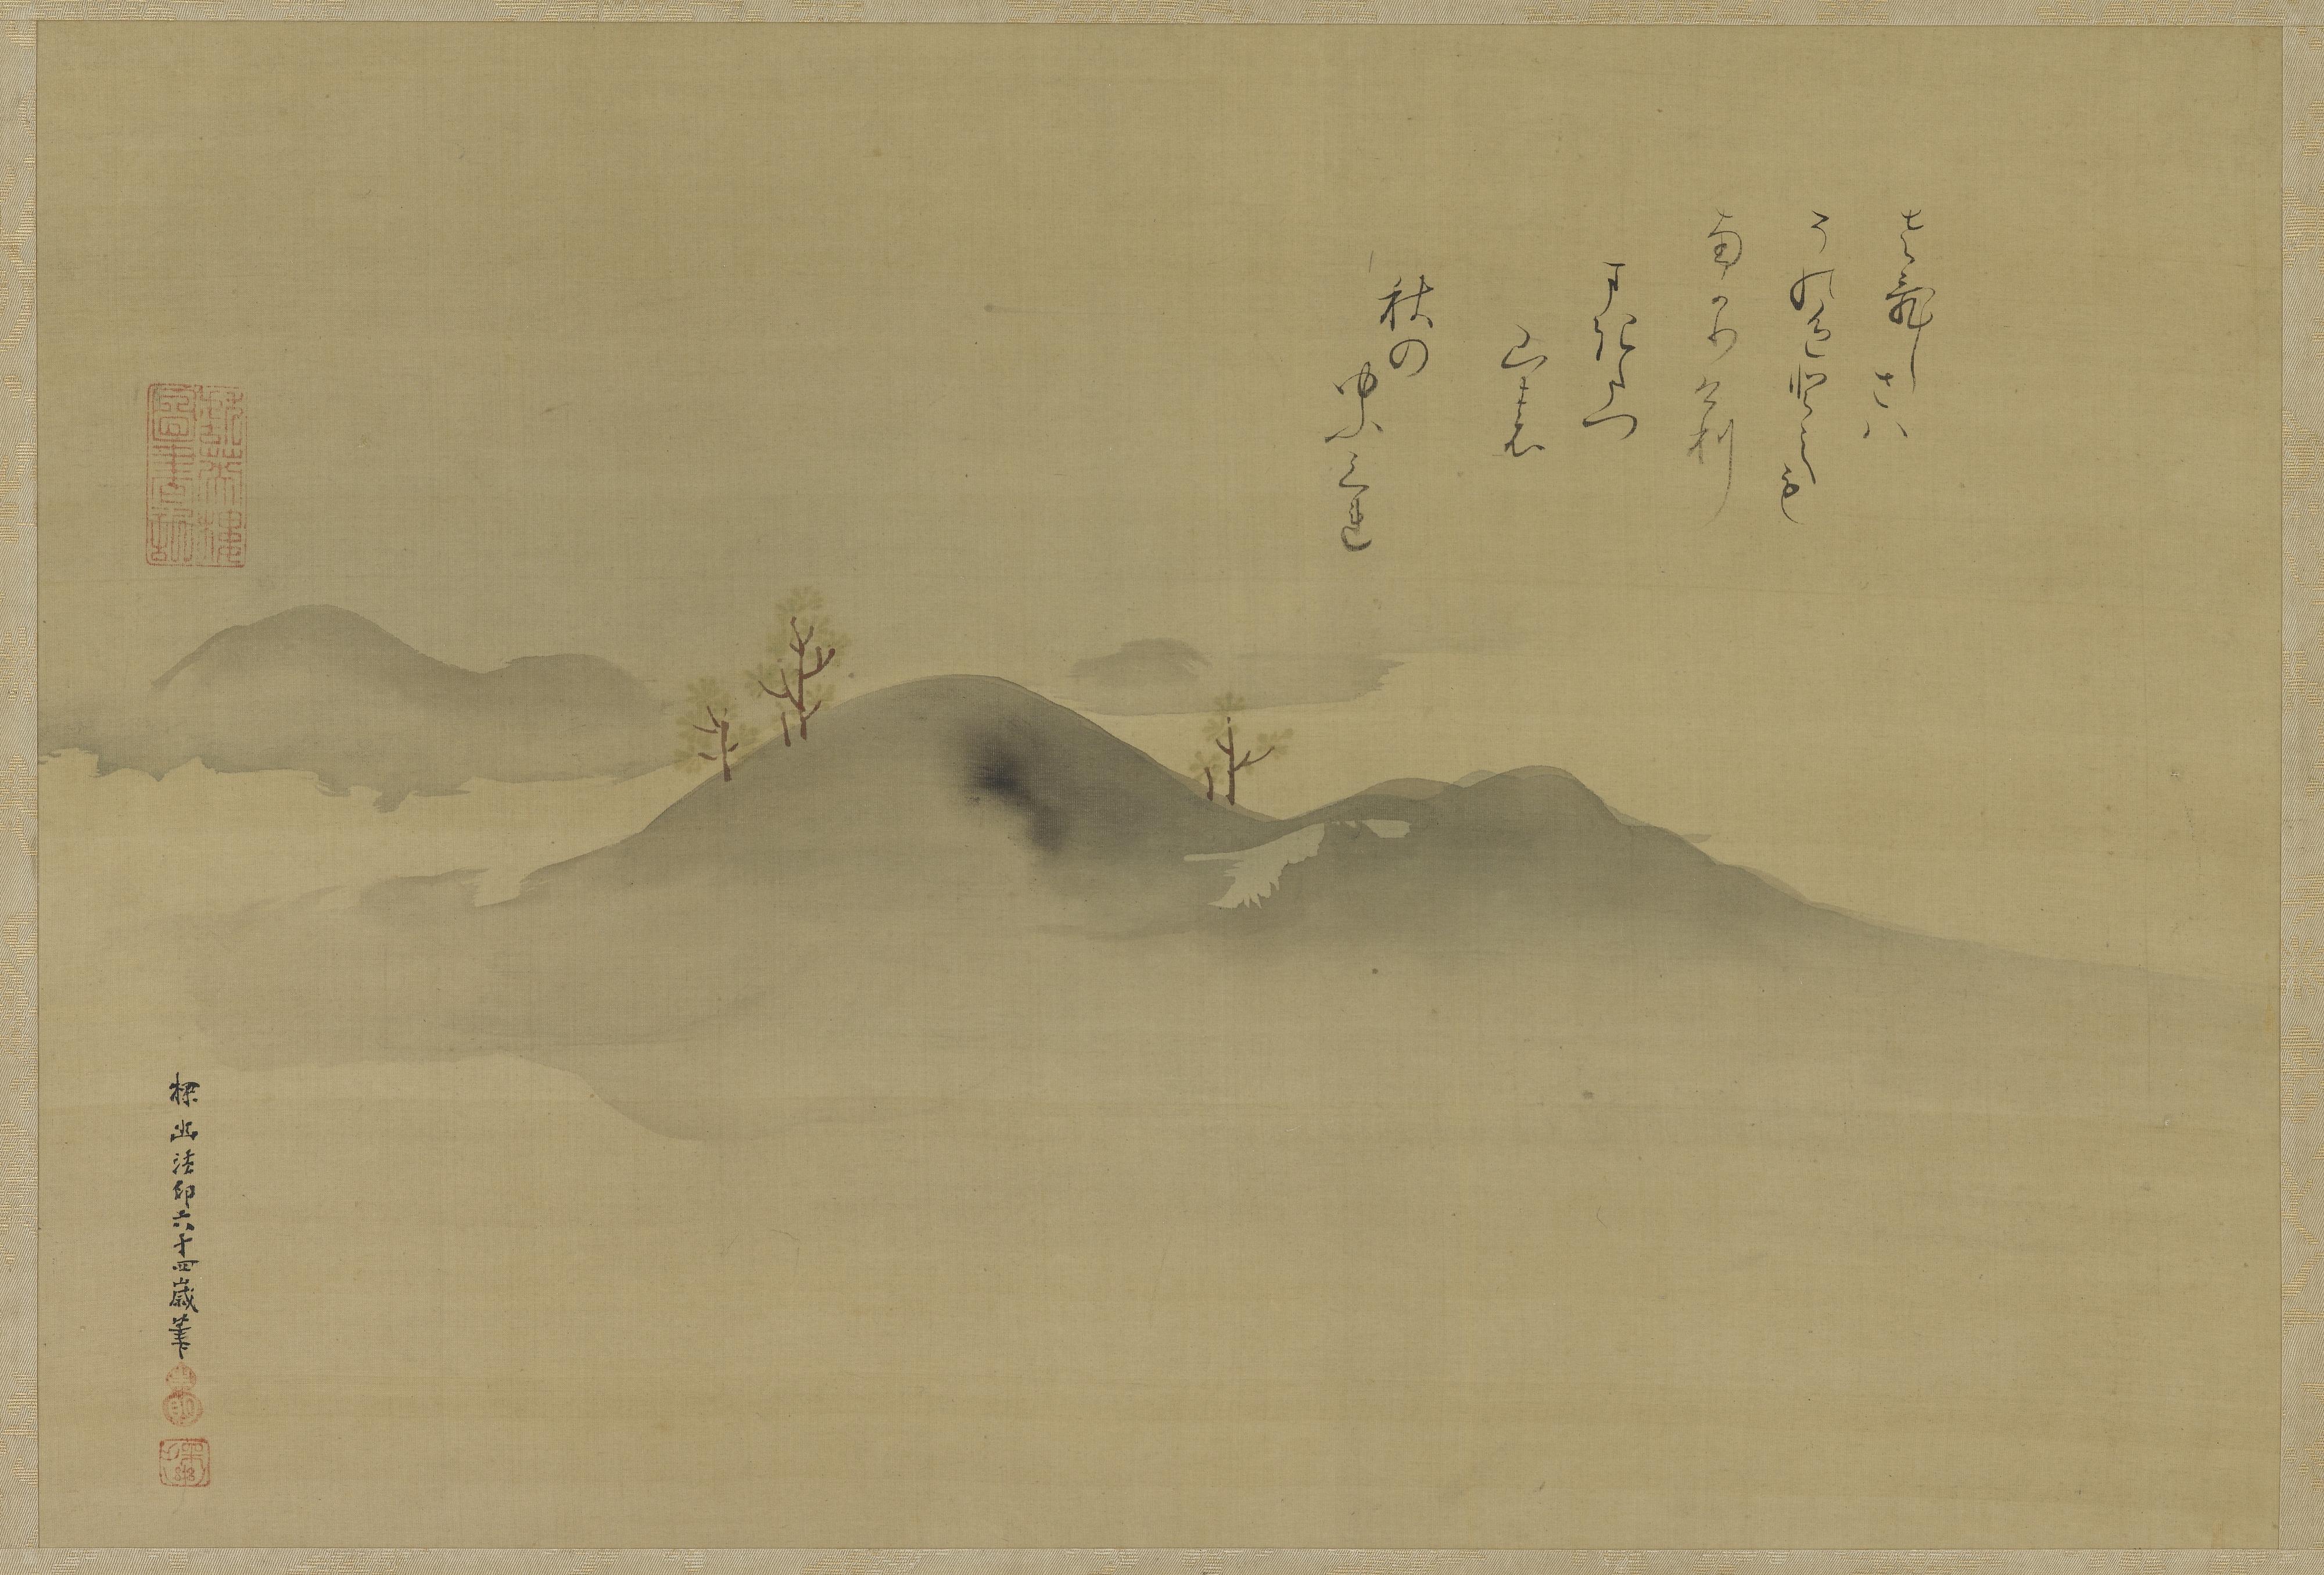 さひしさハ
その色としも
なかりけり
まきたつ
山の
秋の
ゆふくれ
探幽法印六十四歳筆